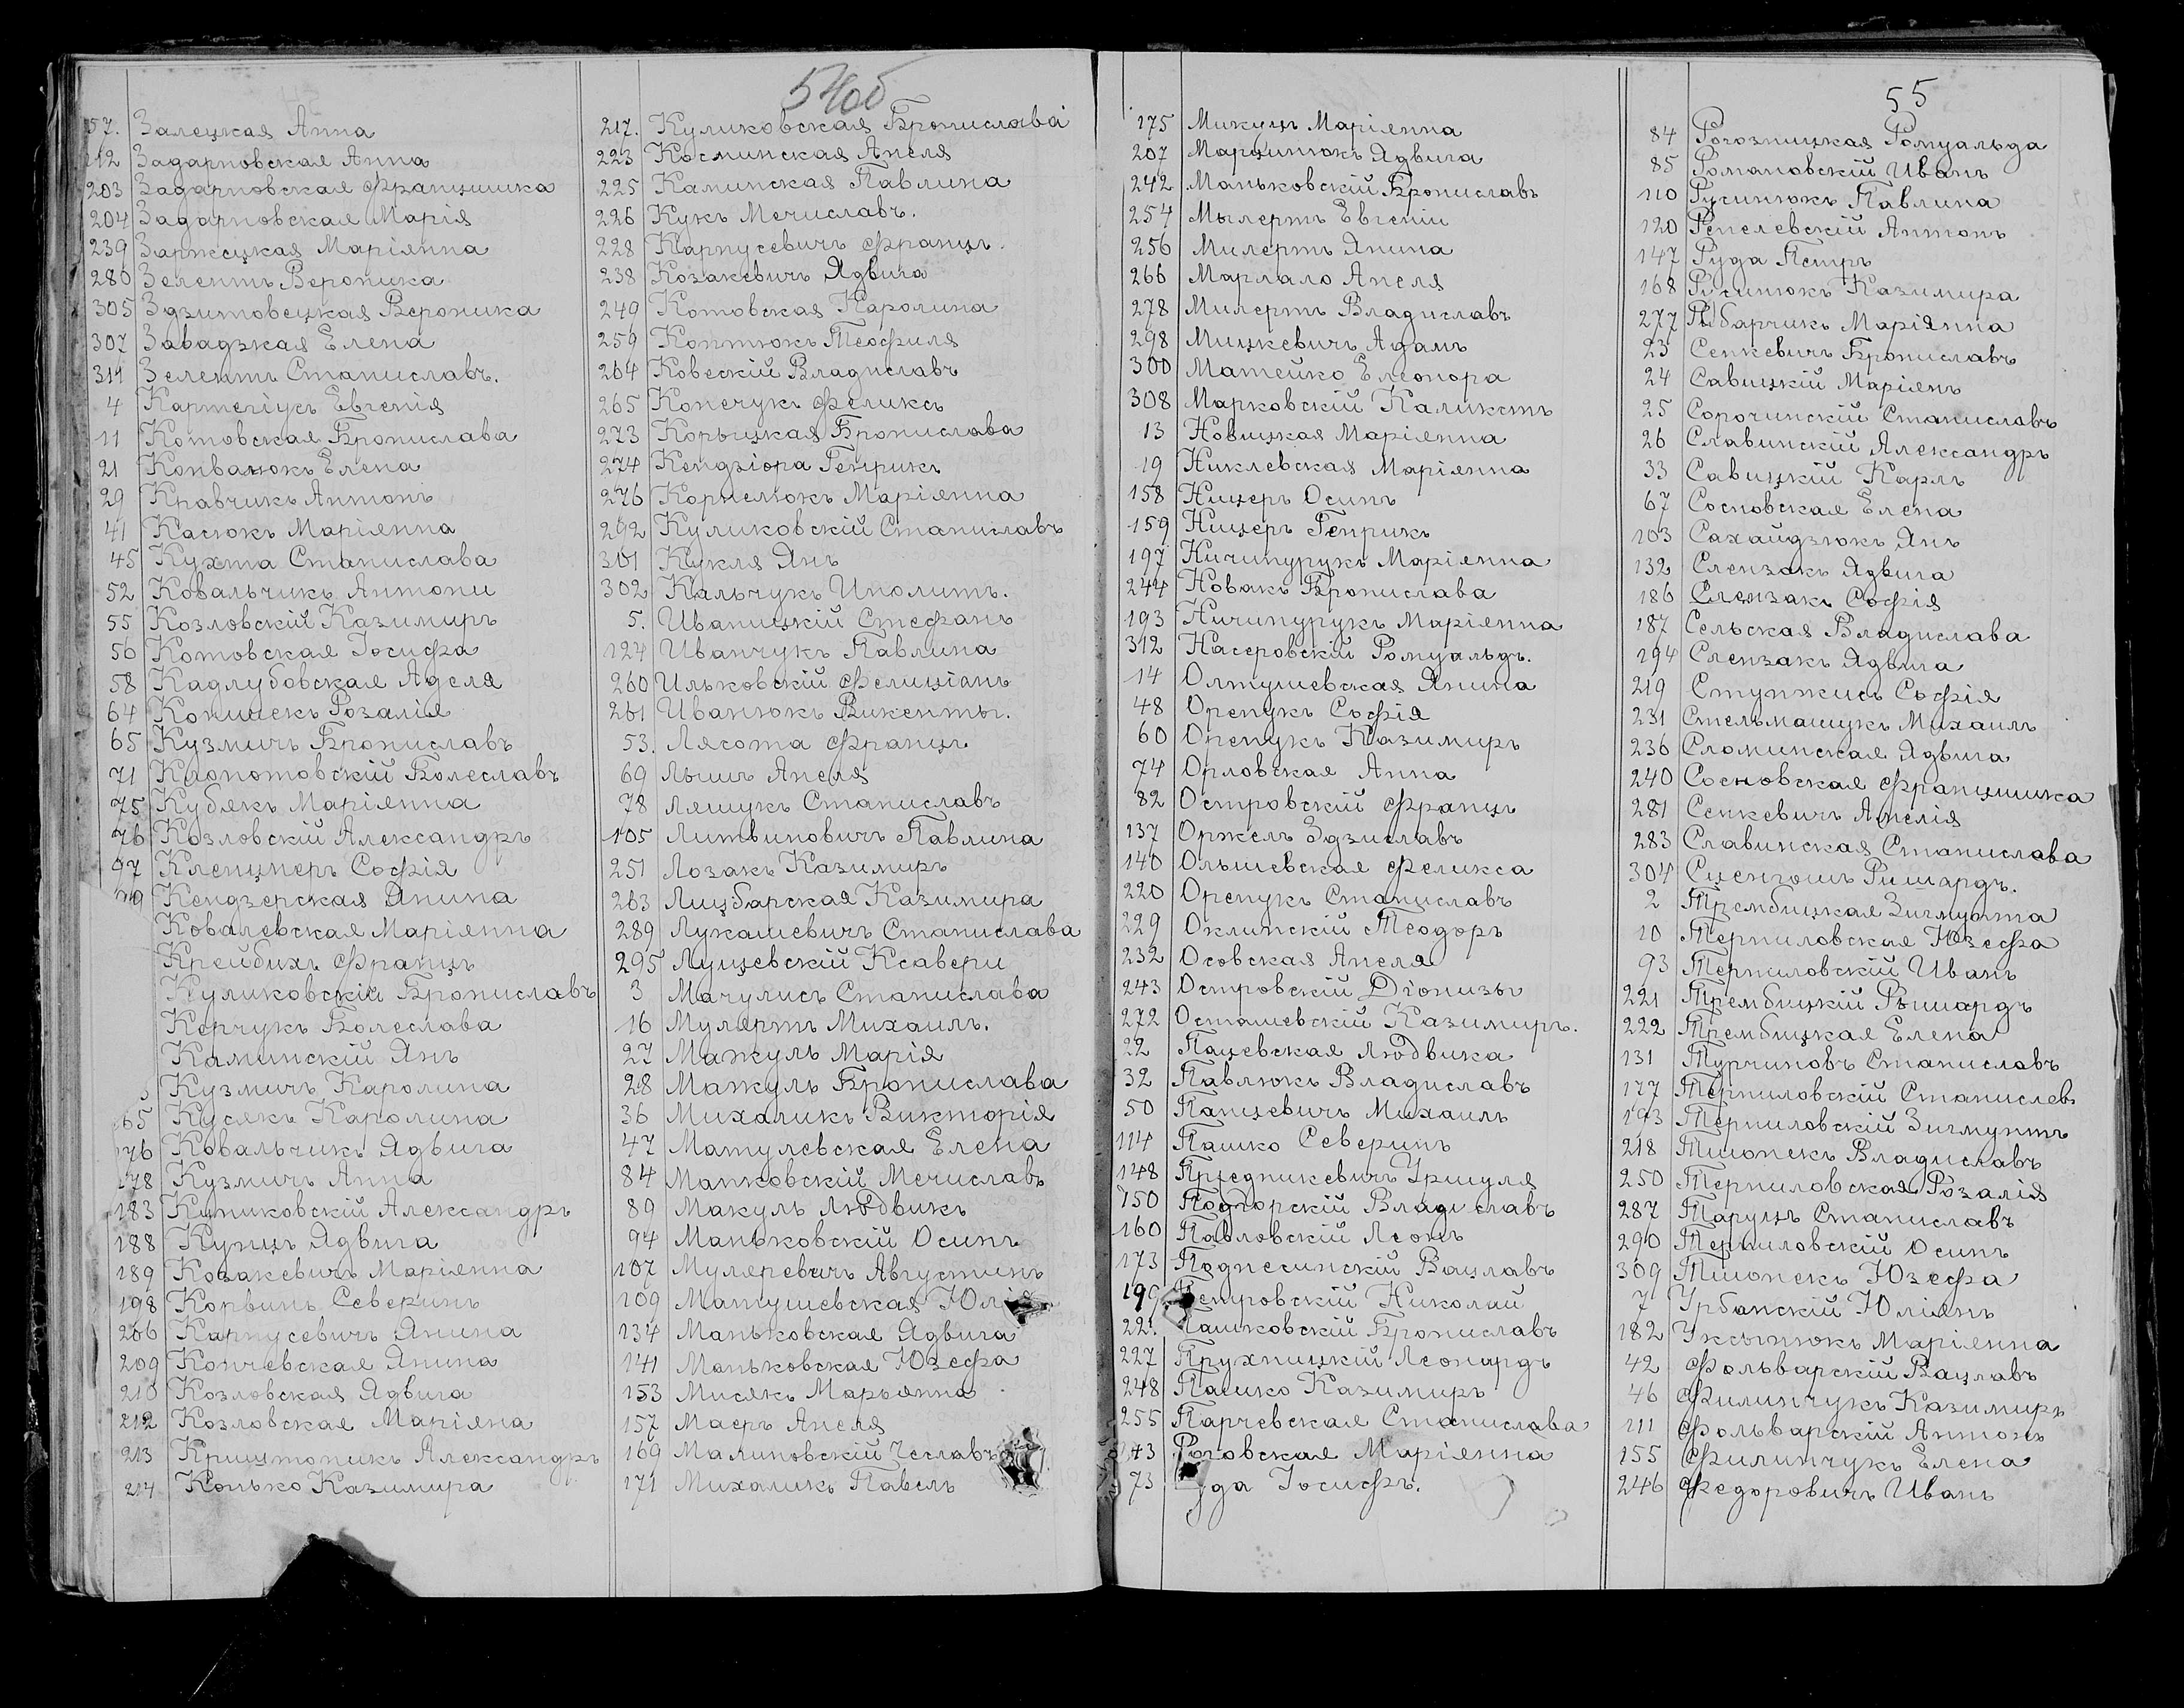 54об
57. Залецкая Анна
112 Задарновская Анна
203 Задарновская Францишка
204 Задарновская Марія
239 Заржецкая Маріянна
280 Зелентъ Вероника
305 Здзитовецкая Вероника
307 Завадзкая Елена
311 Зелентъ Станиславъ.
4 Картегіусъ Евгенія
11 Котовская Бронислава
21 Конванюкъ Елена
29 Кравчикъ Антонъ
41 Касюкъ Маріянна
45 Кухта Станислава
52 Ковальчикъ Антони
55 Козловскій Казимиръ
56 Котовская Іосифа
58 Кадлубовская Аделя
64 Конишекъ Розалія
65 Кузмичъ Брониславъ
71 Клопотовскій Болеславъ
75 Кубякъ Маріянна
76 Козловскій Александръ
97 Кленцнеръ Софія
Кендзерская Янина
Ковалевская Маріянна
Крейбихъ Францъ
Куликовскій Брониславъ
Керчукъ Болеслава
Каминскій Янъ
Кузмичъ Каролина
65 Кусякъ Каролина
176 Ковальчикъ Ядвига
178 Кузмичъ Анна
183 Куликовскій Александръ
188 Купцъ Ядвига
189 Козакевичъ Маріянна
198 Корвинъ Северинъ
206 Карпусевичъ Янина
209 Кончевская Янина
210 Козловская Ядвига
212 Козловская Маріяна
213 Криштопикъ Александръ
214 Конько Казимира
217. Куликовская Бронислава
223 Косминская Анеля
225 Каминская Павлина
226 Кукъ Мечиславъ.
228 Карпусевичъ Францъ.
238 Козакевичъ Ядвига
249 Котовская Каролина
259 Контюкъ Теофиля
264 Ковескій Владиславъ
265 Конечукъ Феликсъ
273 Корыцкая Бронислава
274 Кендзіора Генрикъ
276 Корнелюкъ Маріянна
292 Куликовскій Станиславъ
301 Кукля Янъ
302 Кальчукъ Иполитъ.
5. Иваницкій Стефанъ
124 Иванчукъ Павлина
260 Ильковскій Фелиціанъ
261 Иванюкъ Викенты.
53. Лясота Францъ
69 Лышъ Анеля
78 Ляшукъ Станиславъ
105 Литвиновичъ Павлина
251 Лозакъ Казимиръ
263 Лицбарская Казимира
289 Лукашевичъ Станислава
295 Лущевскій Ксавери
3 Мачулисъ Станислава
16 Мулертъ Михаилъ.
27 Мажуль Марія
28 Мажуль Бронислава
36 Михаликъ Викторія
47 Матулевская Елена
84 Манковскій Мечиславъ
89 Макуль Людвикъ
94 Маньковскій Осипъ
107 Муляревичъ Августинъ
109 Матушевская Юлія
134 Маньковская Ядвига
141 Маньковская Юзефа
153 Мисякъ Марьянна
157 Маеръ Анеля
169 Малиновскій Чеславъ
171 Михаликъ Павелъ
55
175 Микуцъ Маріянна
207 Марцинюкъ Ядвига
242 Маньковскій Брониславъ
254 Мылертъ Евгени
256 Милертъ Янина
266 Марлало Анеля
278 Милертъ Владиславъ
298 Мицкевичъ Адамъ
300 Матейко Елеонора
308 Марковскій Каликстъ
13 Новицкая Маріянна
19 Никлевская Маріянна
158 Ницеръ Осипъ
159 Ницеръ Генрикъ
197 Ничипурукъ Маріянна
244 Новакъ Бронислава
193 Ничипурукъ Маріянна
312 Насеровскій Ромуальдъ.
14 Олтушевская Янина
48 Оренукъ Софія
60 Оренукъ Казимиръ
74 Орловская Анна
82 Островскій Францъ
137 Оржелъ Здзиславъ
140 Ольшевская Феликса
220 Оренукъ Станиславъ
229 Оклинскій Теодоръ
232 Осовская Анеля
243 Островскій Діонизы
272 Осташевскій Казимиръ.
22 Пацевская Людвика
32 Павлюкъ Владиславъ
50 Панцевичъ Михаилъ
114 Пашко Северинъ
148 Прцедникевичъ Уршуля
150 Подгорскій Владиславъ
160 Павловскій Леонъ
173 Поднесинскій Вацлавъ
199 Петровскій Николай
22. Пашковскій Брониславъ
227 Прухницкій Леонардъ
248 Пашко Казимиръ
255 Парчевская Станислава
43 Роговская Маріянна
73 уда Іосифъ.
84 Рогозницкая Ромуальда
85 Романовскій Иванъ
110 Русинюкъ Павлина
120 Репелевскій Антонъ
147 Руда Петръ
168 Русинюкъ Казимира
277 Рыбарчикъ Маріянна
23 Сенкевичъ Брониславъ
24 Савицкій Маріянъ
25 Сорочинскій Станиславъ
26 Славинскій Александръ
33 Савицкій Карлъ
67 Сосновская Елена
103 Сахайдзюкъ Янъ
132 Слензакъ Ядвига
186 Слензакъ Софія
187 Сельская Владислава
194 Слензакъ Ядвига
219 Ступжисъ Софія
231 Стельмашукъ Михаилъ
236 Сломинская Ядвига
240 Сосновская Францишка
281 Сенкевичъ Амелія
283 Славинская Станислава
304 Сценгошъ Ришардъ.
2 Трембицкая Зигмунта
10 Терпиловская Юзефа
93 Терпиловскій Иванъ
221 Трембицкій Рышардъ
222 Трембицкая Елена
131 Турчиновъ Станиславъ
177 Терпиловскій Станиславъ
193 Терпиловскій Зигмунтъ
218 Тшонекъ Владиславъ
250 Терпиловская Розалія
287 Таруцъ Станиславъ
290 Терпиловскій Осипъ
309 Тшонекъ Юзефа
7 Урбанскій Юліянъ
182 Уксытюкъ Маріянна
42 Фольварскій Вацлавъ
46 Филипчукъ Казимиръ
111 Фольварскій Антонъ
155 Филипчукъ Елена
246 Федоровичъ Иванъ